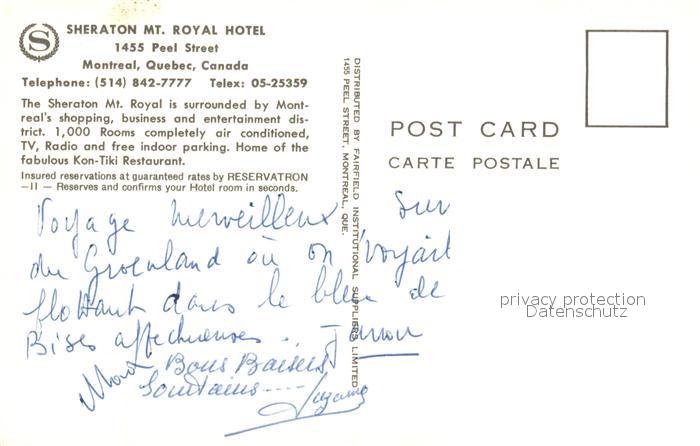 SHERATON MT. ROYAL HOTEL
1455 Peel Street
Montreal, Quebec, Canada
Telephone: (514) 842-7777 Telex: 05-25359
The Sheraton Mt. Royal is surrounded by Mont-
real's shopping, business and entertainment dis-
trict. 1,000 Rooms completely air conditioned,
TV, Radio and free indoor parking. Home of the
fabulous Kon-Tiki Restaurant.
Insured reservations at guaranteed rates by RESERVATRON
-II — Reserves and confirms your Hotel room in seconds.
DISTRIBUTED BY FAIRFIELD INSTITUTIONAL SUPPLIERS LIMITED
1455 PEEL STREET, MONTREAL, QUE.
POST CARD
CARTE POSTALE
Voyage merveilleux sur
du Groenland où on voyait
flottant dans le bleu de
Bises affectueuses..
Bons Baisers
lointains----
privacy protection
Datenschutz